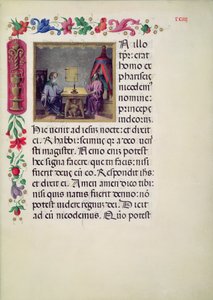 A illo
tpr: erat
homo ex
phariseis
nicodem'
nomine:
princeps
iudeor:
Hic uenit ad iesū nocte: et dixit
ei. Rabbi: scimus qr a deo ueni
sti magister. Nemo eniz potest
hec signa facere que tu facis: nisi
fuerit deus cū eo. Respondit ihs:
et dixit ei. Amen amen dico tibi:
nisi quis natus fuerit denuo: non
potest uidere regnuz dei. Dicit
ad eū nicodemus. Quō potest